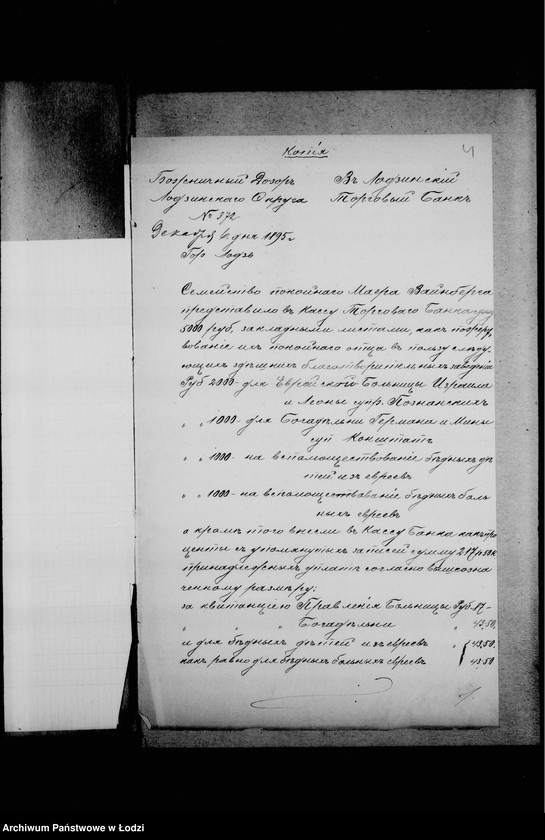 Копія
4
Божничный Дозоръ
Лодзинскаго Округа
№ 372
Декабря 6 дня 1895 г
Гор Лодзь
Въ Лодзинскій
Торговый Банкъ
Семейство покойнаго Маера Вайнберга
представило въ Кассу Торговаго Банка
5000 руб, закладными листами, какъ пожерт
вованіе ихъ покойнаго отца въ пользу слѣду
ющихъ здѣшнихъ благотворительныхъ заведеній
Руб 2000 - для Еврейской Больницы Израиля
и Леоны супр. Познанскихъ
„ „ 1000 - для Богадѣльни Германа и Мины
суп Конштатъ
„ „ 1000 - на вспомоществованіе бѣдныхъ дѣ
тей изъ евреевъ
„ „ 1000 - на вспомоществаваніе бѣдныхъ боль
ныхъ евреевъ
а кромѣ того внесли въ Кассу Банка какъ про
центы съ упомянутыхъ записей сумму 217 р 50 к
принадлежныхъ уплатъ согласно вышеозна
ченному размѣру:
за квитанцію Правленія Больницы Руб. 87 -
„ „ „ Богадѣльни „ 43,50.
и для бѣдныхъ дѣтей изъ евреевъ „ 43,50.
какъ равно для бѣдныхъ больныхъ евреевъ 43,50
Archiwum Państwowe w Łodzi